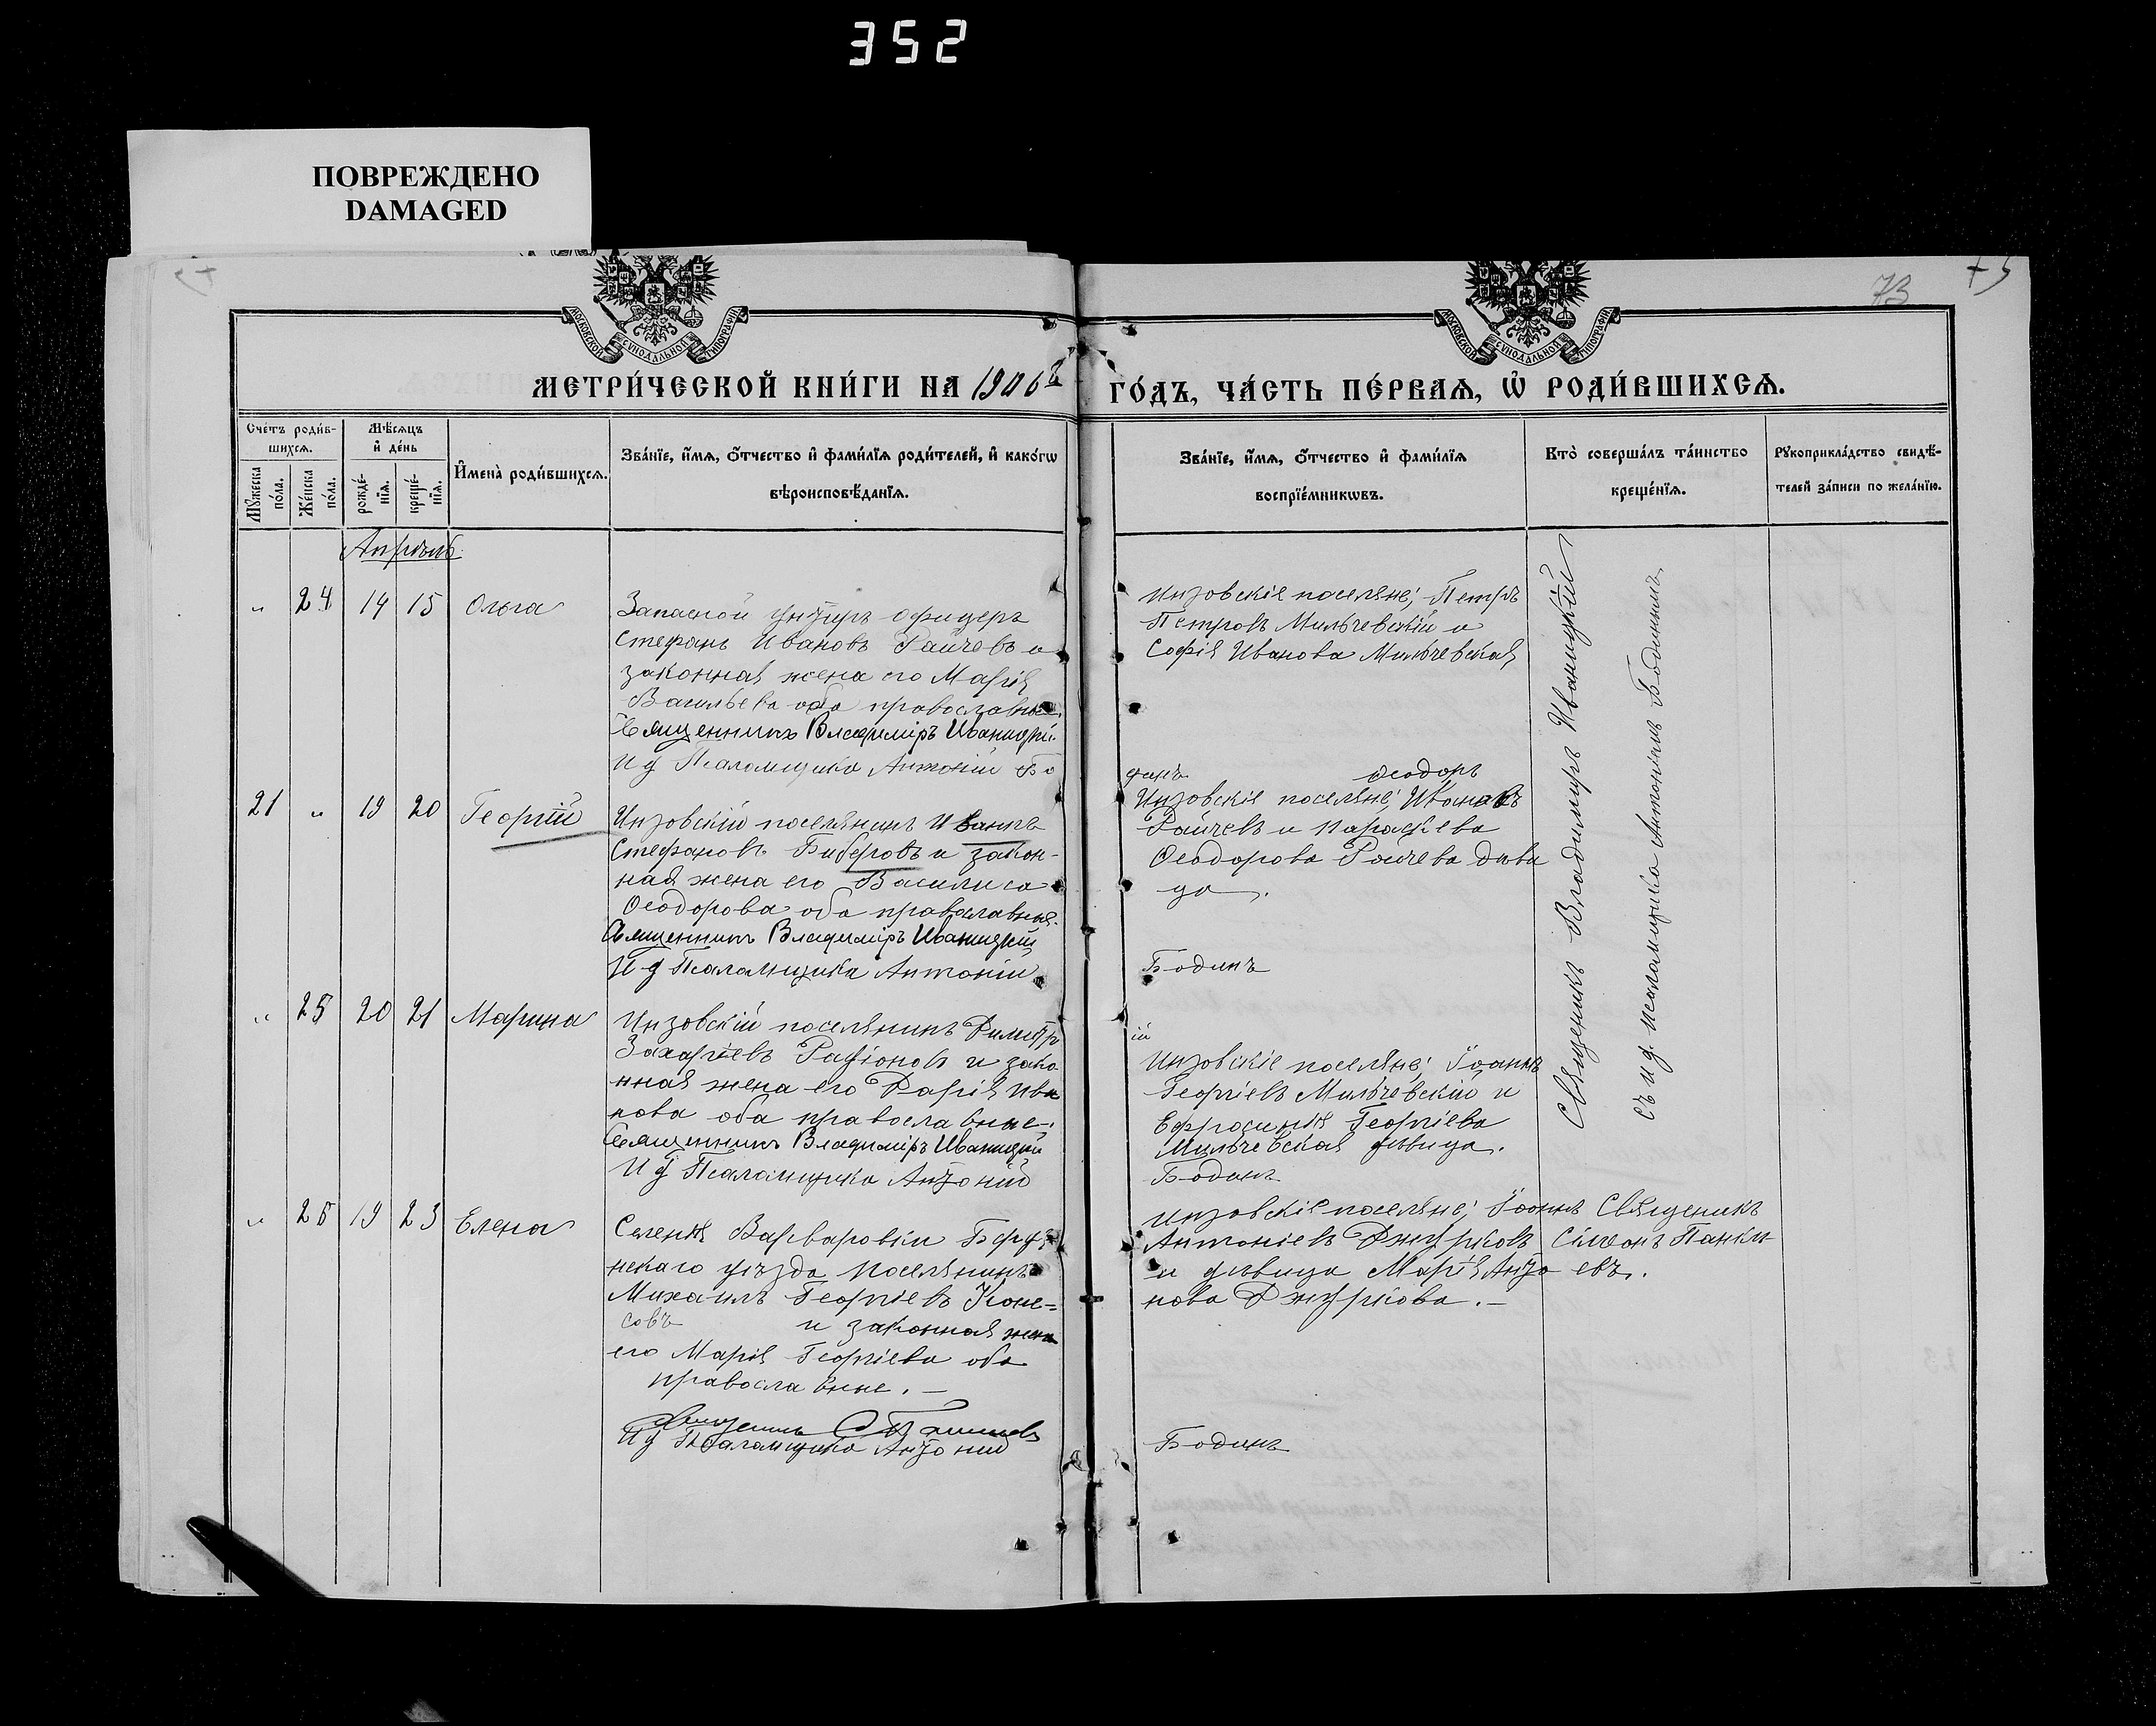 352
ПОВРЕЖДЕНО
DAMAGED
73
МОСКОВСКОЙ СѴНОДАЛЬНОЙ ТИПОГРАФІИ
МОСКОВСКОЙ СѴНОДАЛЬНОЙ ТИПОГРАФІИ
МЕТРИ́ЧЕСКОЙ КНИ́ГИ НА 1906 ГО́ДЪ, ЧА́СТЬ ПЕ́РВАѦ, Ѡ҆ РОДИ́ВШИХСѦ.
Сче́тъ роди́в-
шихсѧ.
Мꙋ́жеска по́ла.
Же́нска по́ла.
Мѣ́сѧцъ
и҆ де́нь
рожде́-
нїѧ.
креще́-
нїѧ.
И҆мена̀ роди́вшихсѧ.
Зва́нїе, и҆́мѧ, ѻ҆́тчество и҆ фами́лїѧ роди́телей, и҆ како́гѡ
вѣроисповѣ́данїѧ.
Зва́нїе, и҆́мѧ, ѻ҆́тчество и҆ фами́лїѧ
воспрїе́мникѡвъ.
Кто̀ соверша́лъ та́инство
креще́нїѧ.
Рꙋкоприкла́дство свидѣ́-
телей за́писи по жела́нїю.
Апрѣль
" 24 14 15 Ольга
Запасной унтеръ офицеръ
Стефанъ Ивановъ Райчевъ и
законная жена его Марія
Васильева оба православные
Священникъ Владиміръ Иваницкій
И д Псаломщика Антоній Бо
Инзовскіе поселяне; Петръ
Петровъ Мильчевскій и
Софія Иванова Мильчевская
динъ
21 " 19 20 Георгій
Инзовскій поселянинъ Иванъ
Стефановъ Биберовъ и закон-
ная жена его Василиса
Ѳеодорова оба православные
Священникъ Владиміръ Иваницкій
И д Псаломщика Антоній
Ѳеодоръ
Инзовскіе поселяне; Ивановъ
Райчевъ и Параскева
Ѳеодорова Райчева дѣви
ца.
Бодинъ
" 25 20 21 Марина
Инзовскій поселянинъ Димитр
Захаріевъ Радіоновъ и зако
нная жена его Дарія Ива
нова оба православные.
Священникъ Владиміръ Иваницкій
И д Псаломщика Антоній
ій
Инзовскіе поселяне; Іоаннъ
Георгіевъ Мильчевскій и
Ефросинія Георгіева
Мильчевская дѣвица.
Бодинъ
Священникъ Владиміръ Иваницкій
съ и д. псаломщика Антоніемъ Бодинымъ.
" 26 19 23 Елена
Селенія Варваровки Бердя
нскаго уѣзда поселянинъ
Михаилъ Георгіевъ Коне-
совъ и законная жена
его Марія Георгіева оба
православные. —
И д Псаломщика Антоній
Инзовскіе поселяне; Іоаннъ
Антоніевъ Джурковъ
и дѣвица Марія Анто
нова Джуркова. —
Бодинъ
Священикъ
Сімеонъ Панки
евъ.